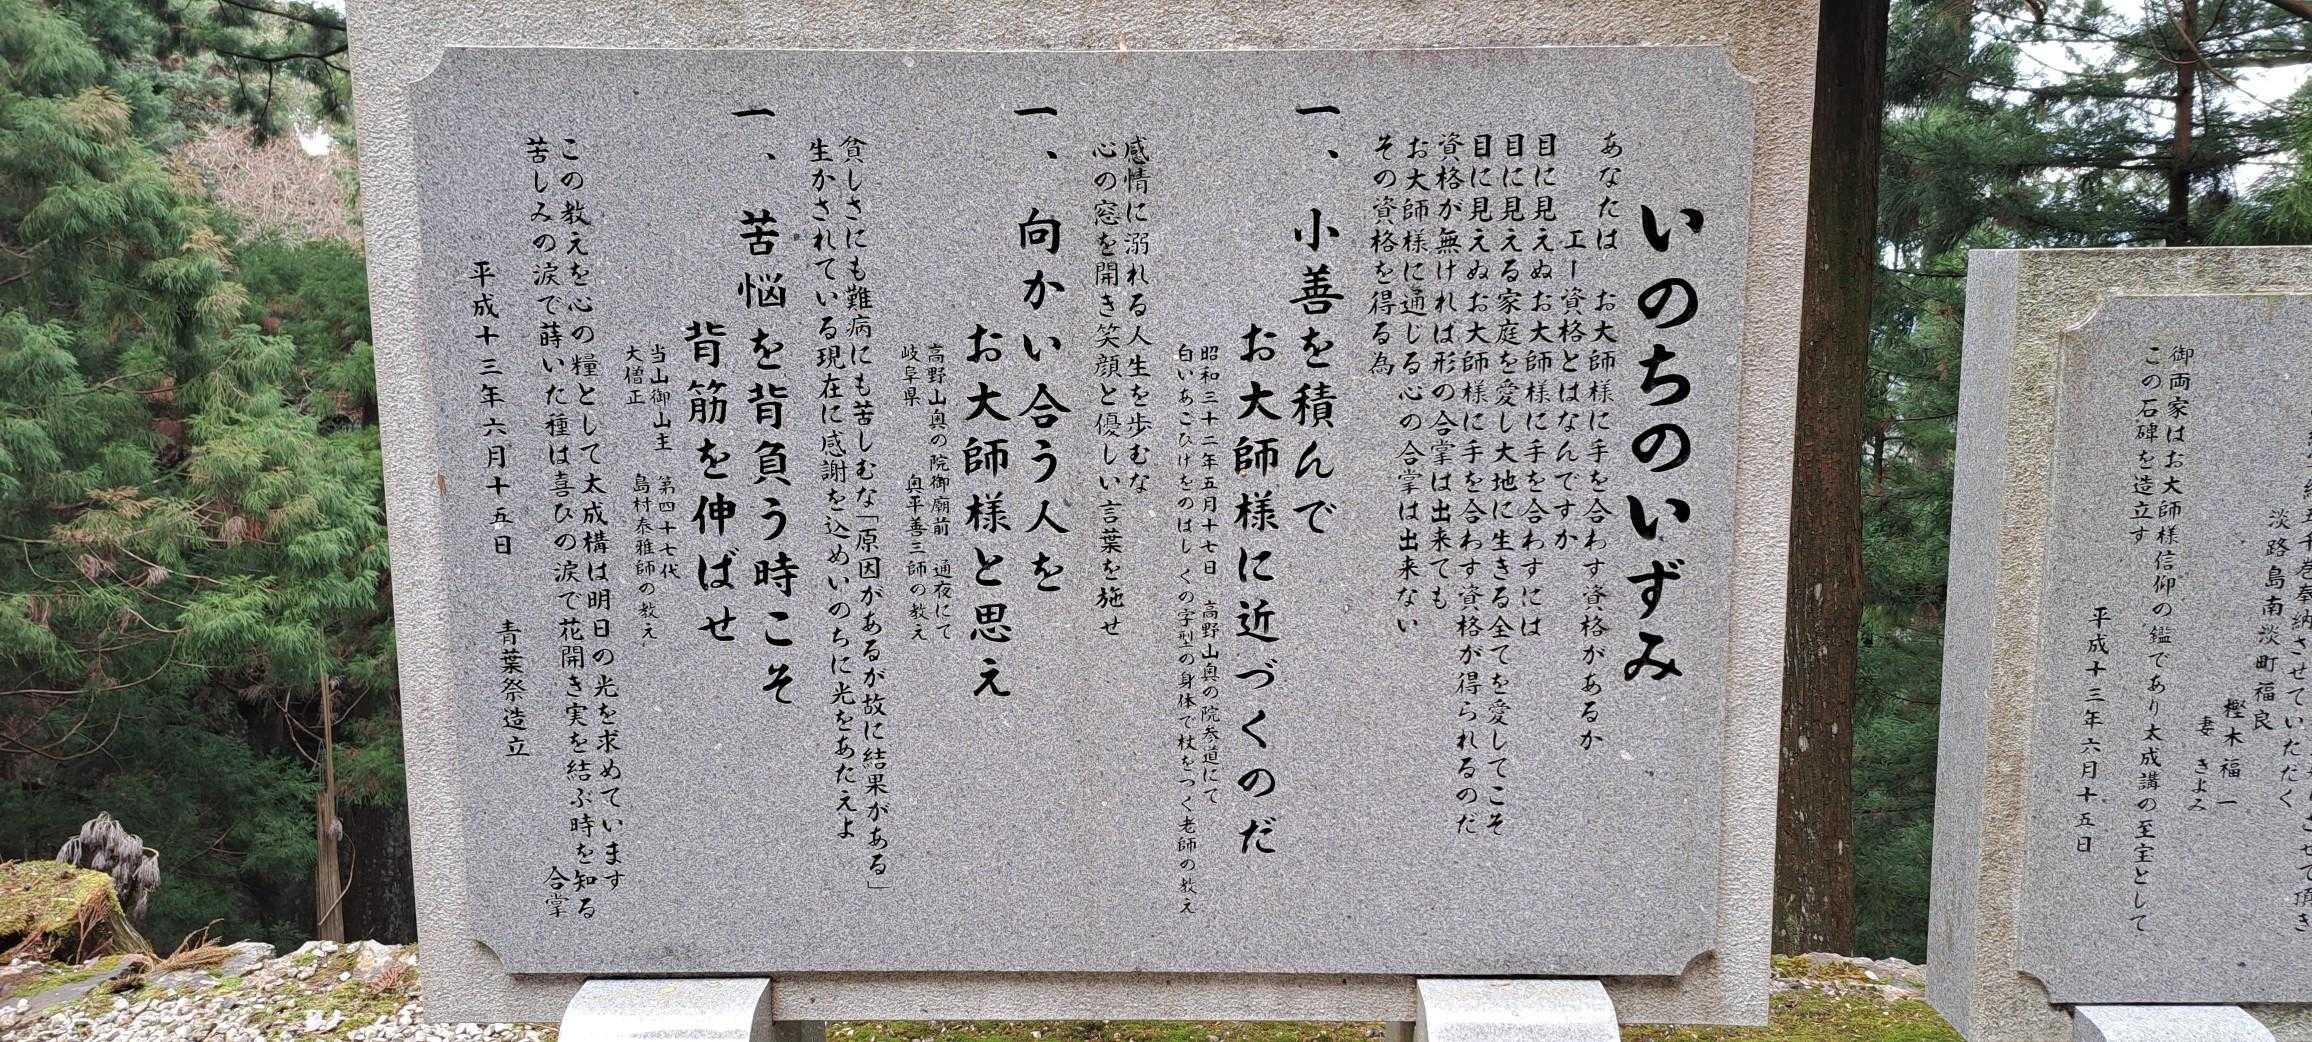 いのちのいずみ
あなたは お大師様に手を合わす資格があるか
エー資格とはなんですか
目に見えぬお大師様に手を合わすには
目に見える家庭を愛し大地に生きる全てを愛してこそ
目に見えぬお大師様に手を合わす資格が得られるのだ
資格が無ければ形の合掌は出来ても
お大師様に通じる心の合掌は出来ない
その資格を得る為
一、小善を積んで
お大師様に近づくのだ
昭和三十二年五月十七日 高野山奥の院参道にて
白いあごひげをのはし くの字型の身体で杖をつく老師の教え
感情に溺れる人生を歩むな
心の窓を開き笑顔と優しい言葉を施せ
一、向かい合う人を
お大師様と思え
高野山奥の院御廟前 通夜にて
岐阜県 奥平善三師の教え
貧しさにも難病にも苦しむな「原因があるが故に結果がある」
生かされている現在に感謝を込めいのちに光をあたえよ
一、苦悩を背負う時こそ
背筋を伸ばせ
当山御山主 第四十七代
大僧正 島村泰雅師の教え
この教えを心の糧として太成構は明日の光を求めています
苦しみの涙で蒔いた種は喜びの涙で花開き実を結ぶ時を知る
合掌
平成十三年六月十五日 青葉祭造立
巻奉納させていただく
淡路島南淡町福良
樫木福一
妻 きよみ
御両家はお大師様信仰の鑑であり太成講の至宝として
この石碑を造立す
平成十三年六月十五日